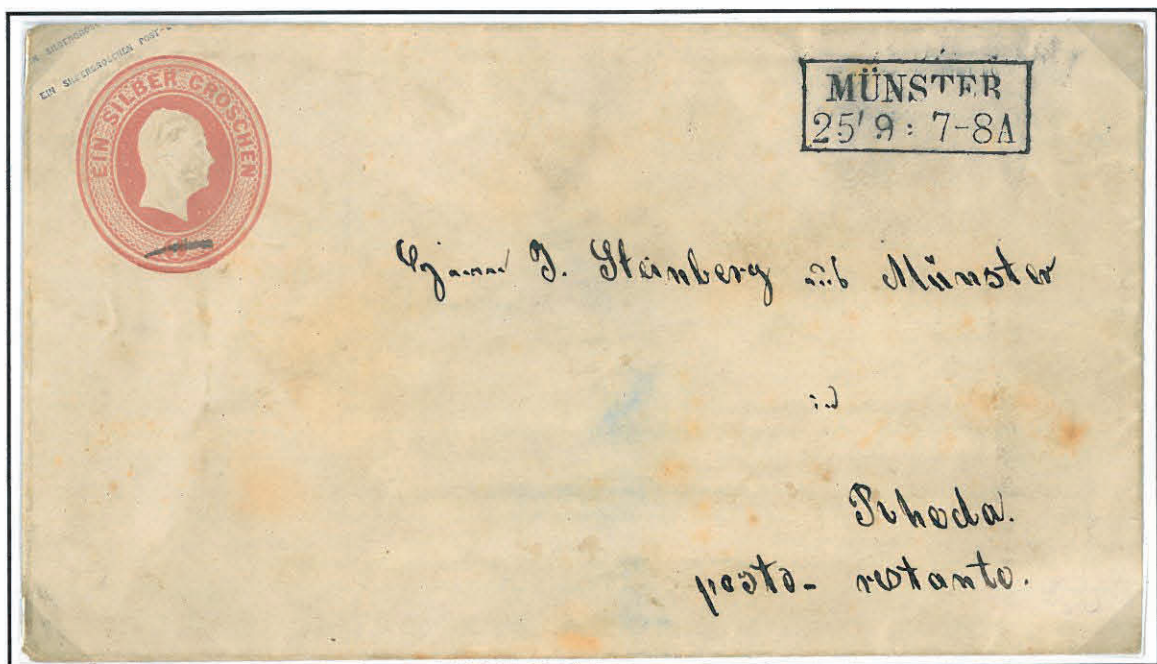 EIN SILBERGROSCHEN POST-
EIN SILBER GROSCHEN
MÜNSTER
25/9 : 7-8A
Herrn J. Steinberg aus Münster
in
Rheda.
poste- restante.